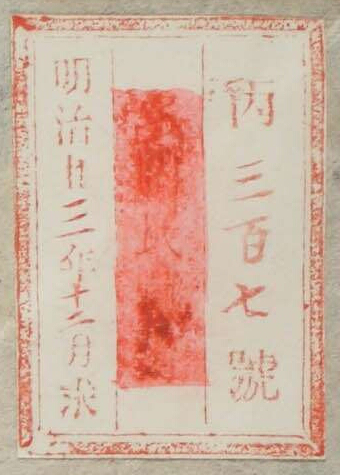 丙三百七號
明治廿三年十二月求